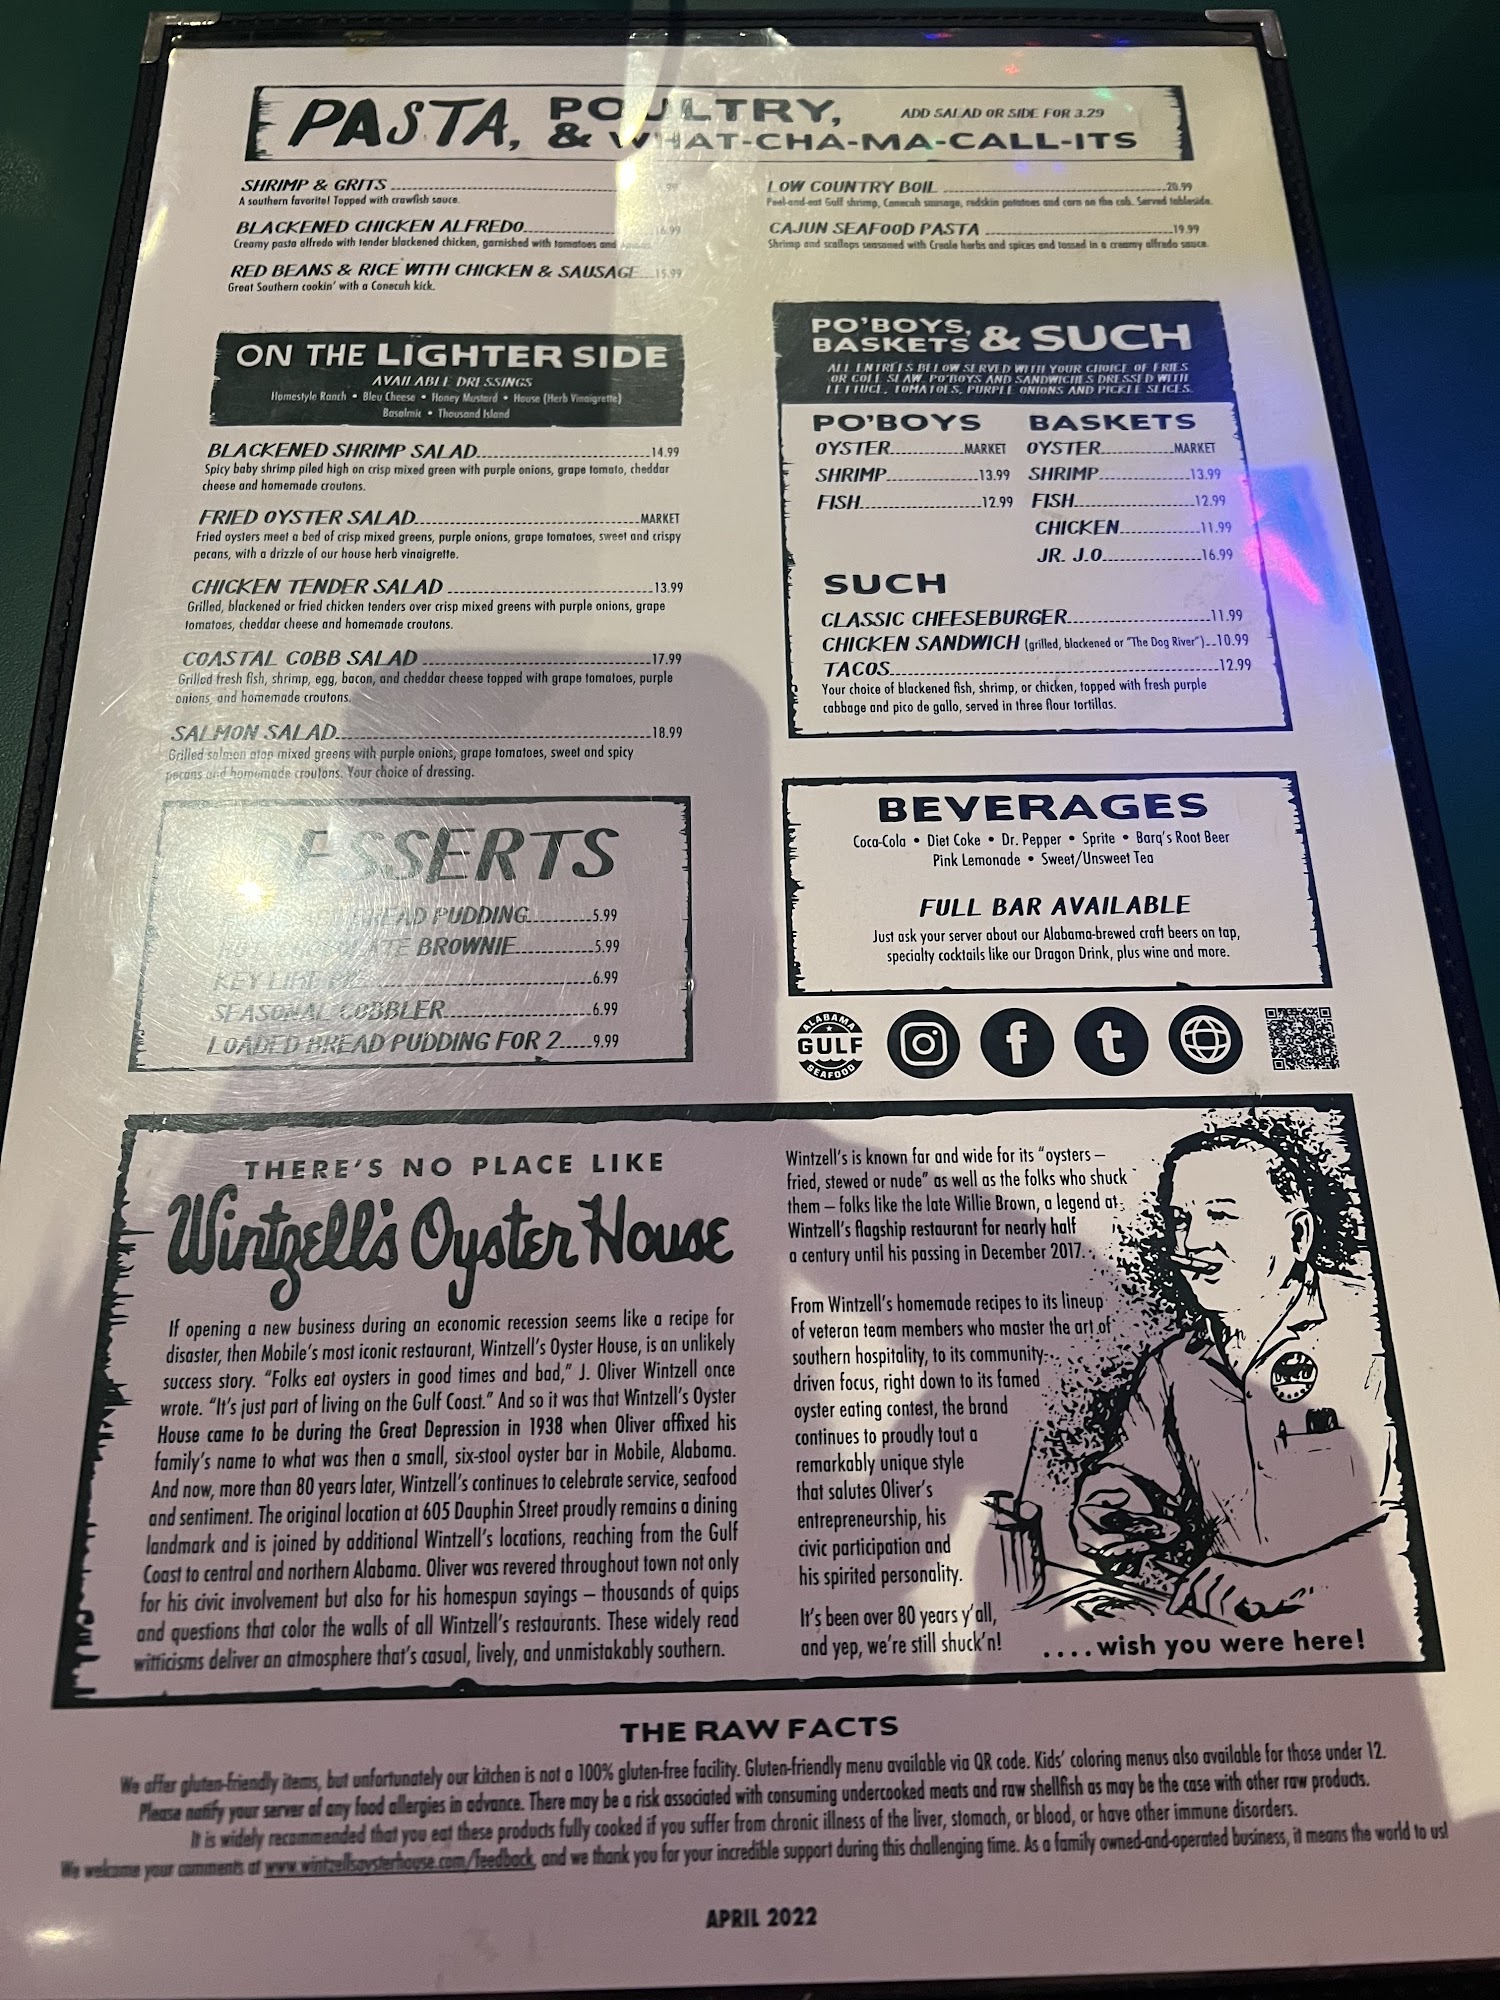 PASTA, POULTRY, & WHAT-CHA-MA-CALL-ITS
ADD SALAD OR SIDE FOR 3.29
SHRIMP & GRITS
A southern favorite! Topped with crawfish sauce.
BLACKENED CHICKEN ALFREDO 16.99
Creamy pasta alfredo with tender blackened chicken, garnished with tomatoes and
RED BEANS & RICE WITH CHICKEN & SAUSAGE 15.99
Great Southern cookin' with a Conecuh kick.
LOW COUNTRY BOIL 20.99
Peel-and-eat Gulf shrimp, Conecuh sausage, redskin potatoes and corn on the cob. Served tableside.
CAJUN SEAFOOD PASTA 19.99
Shrimp and scallops seasoned with Creole herbs and spices and tossed in a creamy alfredo sauce.
ON THE LIGHTER SIDE
AVAILABLE DRESSINGS
Homestyle Ranch • Bleu Cheese • Honey Mustard • House (Herb Vinaigrette)
Basalmic • Thousand Island
BLACKENED SHRIMP SALAD 14.99
Spicy baby shrimp piled high on crisp mixed green with purple onions, grape tomato, cheddar
cheese and homemade croutons.
FRIED OYSTER SALAD MARKET
Fried oysters meet a bed of crisp mixed greens, purple onions, grape tomatoes, sweet and crispy
pecans, with a drizzle of our house herb vinaigrette.
CHICKEN TENDER SALAD 13.99
Grilled, blackened or fried chicken tenders over crisp mixed greens with purple onions, grape
tomatoes, cheddar cheese and homemade croutons.
COASTAL COBB SALAD 17.99
Grilled fresh fish, shrimp, egg, bacon, and cheddar cheese topped with grape tomatoes, purple
onions, and homemade croutons.
SALMON SALAD 18.99
Grilled salmon atop mixed greens with purple onions, grape tomatoes, sweet and spicy
pecans and homemade croutons. Your choice of dressing.
DESSERTS
BREAD PUDDING 5.99
CHOCOLATE BROWNIE 5.99
KEY LIME PIE 6.99
SEASONAL COBBLER 6.99
LOADED BREAD PUDDING FOR 2 9.99
PO'BOYS, BASKETS & SUCH
ALL ENTREES BELOW SERVED WITH YOUR CHOICE OF FRIES
OR COLE SLAW. PO'BOYS AND SANDWICHES DRESSED WITH
LETTUCE, TOMATOES, PURPLE ONIONS AND PICKLE SLICES.
PO'BOYS
OYSTER MARKET
SHRIMP 13.99
FISH 12.99
BASKETS
OYSTER MARKET
SHRIMP 13.99
FISH 12.99
CHICKEN 11.99
JR. J.O. 16.99
SUCH
CLASSIC CHEESEBURGER 11.99
CHICKEN SANDWICH (grilled, blackened or "The Dog River") 10.99
TACOS 12.99
Your choice of blackened fish, shrimp, or chicken, topped with fresh purple
cabbage and pico de gallo, served in three flour tortillas.
BEVERAGES
Coca-Cola • Diet Coke • Dr. Pepper • Sprite • Barq's Root Beer
Pink Lemonade • Sweet/Unsweet Tea
FULL BAR AVAILABLE
Just ask your server about our Alabama-brewed craft beers on tap,
specialty cocktails like our Dragon Drink, plus wine and more.
ALABAMA
GULF
SEAFOOD
THERE'S NO PLACE LIKE
Wintzell's Oyster House
If opening a new business during an economic recession seems like a recipe for
disaster, then Mobile's most iconic restaurant, Wintzell's Oyster House, is an unlikely
success story. "Folks eat oysters in good times and bad," J. Oliver Wintzell once
wrote. "It's just part of living on the Gulf Coast." And so it was that Wintzell's Oyster
House came to be during the Great Depression in 1938 when Oliver affixed his
family's name to what was then a small, six-stool oyster bar in Mobile, Alabama.
And now, more than 80 years later, Wintzell's continues to celebrate service, seafood
and sentiment. The original location at 605 Dauphin Street proudly remains a dining
landmark and is joined by additional Wintzell's locations, reaching from the Gulf
Coast to central and northern Alabama. Oliver was revered throughout town not only
for his civic involvement but also for his homespun sayings – thousands of quips
and questions that color the walls of all Wintzell's restaurants. These widely read
witticisms deliver an atmosphere that's casual, lively, and unmistakably southern.
Wintzell's is known far and wide for its "oysters –
fried, stewed or nude" as well as the folks who shuck
them – folks like the late Willie Brown, a legend at
Wintzell's flagship restaurant for nearly half
a century until his passing in December 2017.
From Wintzell's homemade recipes to its lineup
of veteran team members who master the art of
southern hospitality, to its community-
driven focus, right down to its famed
oyster eating contest, the brand
continues to proudly tout a
remarkably unique style
that salutes Oliver's
entrepreneurship, his
civic participation and
his spirited personality.
It's been over 80 years y'all,
and yep, we're still shuck'n!
....wish you were here!
THE RAW FACTS
We offer gluten-friendly items, but unfortunately our kitchen is not a 100% gluten-free facility. Gluten-friendly menu available via QR code. Kids' coloring menus also available for those under 12.
Please notify your server of any food allergies in advance. There may be a risk associated with consuming undercooked meats and raw shellfish as may be the case with other raw products.
It is widely recommended that you eat these products fully cooked if you suffer from chronic illness of the liver, stomach, or blood, or have other immune disorders.
We welcome your comments at www.wintzellsoysterhouse.com/feedback, and we thank you for your incredible support during this challenging time. As a family owned-and-operated business, it means the world to us!
APRIL 2022